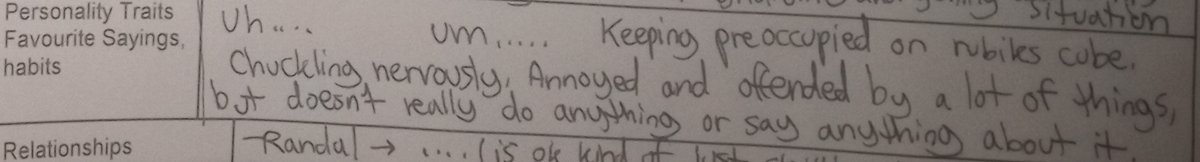 situation
Personality Traits
Favourite Sayings,
habits
Uh.... um,.... Keeping preoccupied on rubiks cube.
Chuckling nervously, Annoyed and offended by a lot of things,
but doesn't really do anything or say anything about it
Relationships
-Randal → .... (is ok kind of